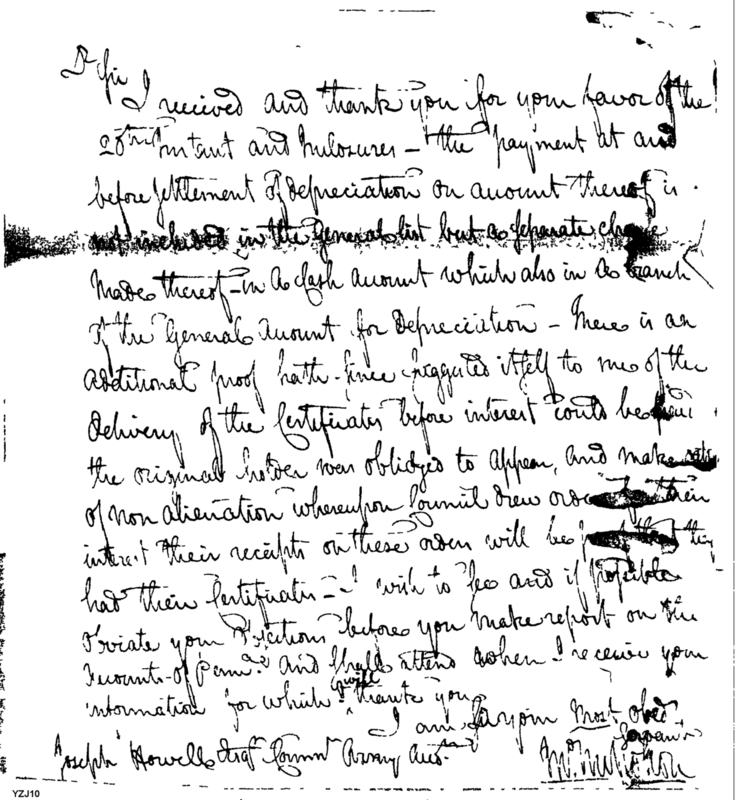 Dr Sir
I received and thank you for your favor of the
28th Instant and Inclosures – the payment at and
before settlement of depreciation on amount thereof is
not included in the General list but a separate charge
made thereof – in a Cash account which also in a branch
of the General Account for Depreciation – There is an
additional proof hath since suggested itself to me of the
delivery of the Certificates before interest could be
the original holder was obliged to appear, and make
of non alienation whereupon Council drew orders their
interest their receipts on these orders will be that they
had their Certificates – I wish to see and if possible
obviate your objections before you make report on the
Accounts of Penna. and shall attend when I receive your
information for which will thank you
I am Sir your most obed
Servant
Joseph Howell Esqr Commr Army Accts
YZJ10